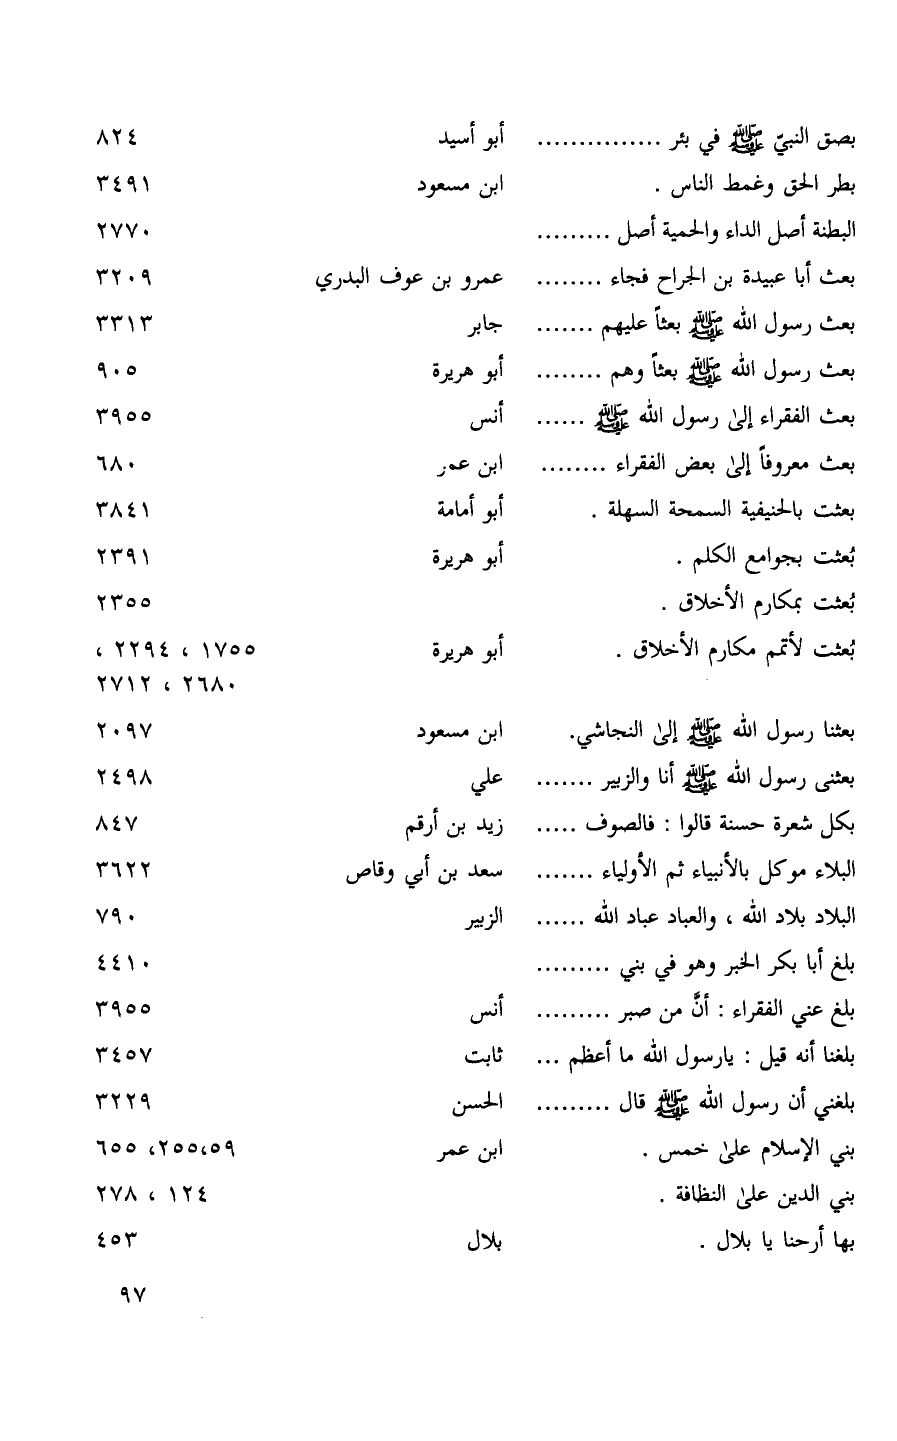 بصق النبيّ ﷺ في بئر ............... أبو أسيد ٨٢٤
بطر الحق وغمط الناس . ابن مسعود ٣٤٩١
البطنة أصل الداء والحمية أصل ......... ٢٧٧٠
بعث أبا عبيدة بن الجراح فجاء ........ عمرو بن عوف البدري ٣٢٠٩
بعث رسول الله ﷺ بعثاً عليهم ....... جابر ٣٣١٣
بعث رسول الله ﷺ بعثاً وهم ........ أبو هريرة ٩٠٥
بعث الفقراء إلىٰ رسول الله ﷺ ...... أنس ٣٩٥٥
بعث معروفاً إلىٰ بعض الفقراء ........ ابن عمر ٦٨٠
بعثت بالحنيفية السمحة السهلة . أبو أمامة ٣٨٤١
بُعثت بجوامع الكلم . أبو هريرة ٢٣٩١
بُعثت بمكارم الأخلاق . ٢٣٥٥
بُعثت لأتمم مكارم الأخلاق . أبو هريرة ١٧٥٥ ، ٢٢٩٤ ،
٢٦٨٠ ، ٢٧١٢
بعثنا رسول الله ﷺ إلىٰ النجاشي. ابن مسعود ٢٠٩٧
بعثنى رسول الله ﷺ أنا والزبير ....... علي ٢٤٩٨
بكل شعرة حسنة قالوا : فالصوف ..... زيد بن أرقم ٨٤٧
البلاء موكل بالأنبياء ثم الأولياء ....... سعد بن أبي وقاص ٣٦٢٢
البلاد بلاد الله ، والعباد عباد الله ...... الزبير ٧٩٠
بلغ أبا بكر الخبر وهو في بني ......... ٤٤١٠
بلغ عني الفقراء : أنَّ من صبر ......... أنس ٣٩٥٥
بلغنا أنه قيل : يارسول الله ما أعظم ... ثابت ٣٤٥٧
بلغني أن رسول الله ﷺ قال ......... الحسن ٣٢٢٩
بني الإسلام علىٰ خمس . ابن عمر ٢٥٥،٥٩، ٦٥٥
بني الدين علىٰ النظافة . ١٢٤ ، ٢٧٨
بها أرحنا يا بلال . بلال ٤٥٣
٩٧